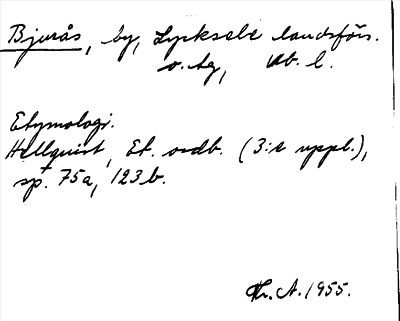 Bjurås, by, Lycksele landsförs.
o. tg, Vb. l.
Etymologi.
Hellquist, Et. ordb. (3:e uppl.),
sp. 75a, 123b.
Th. A. 1955.